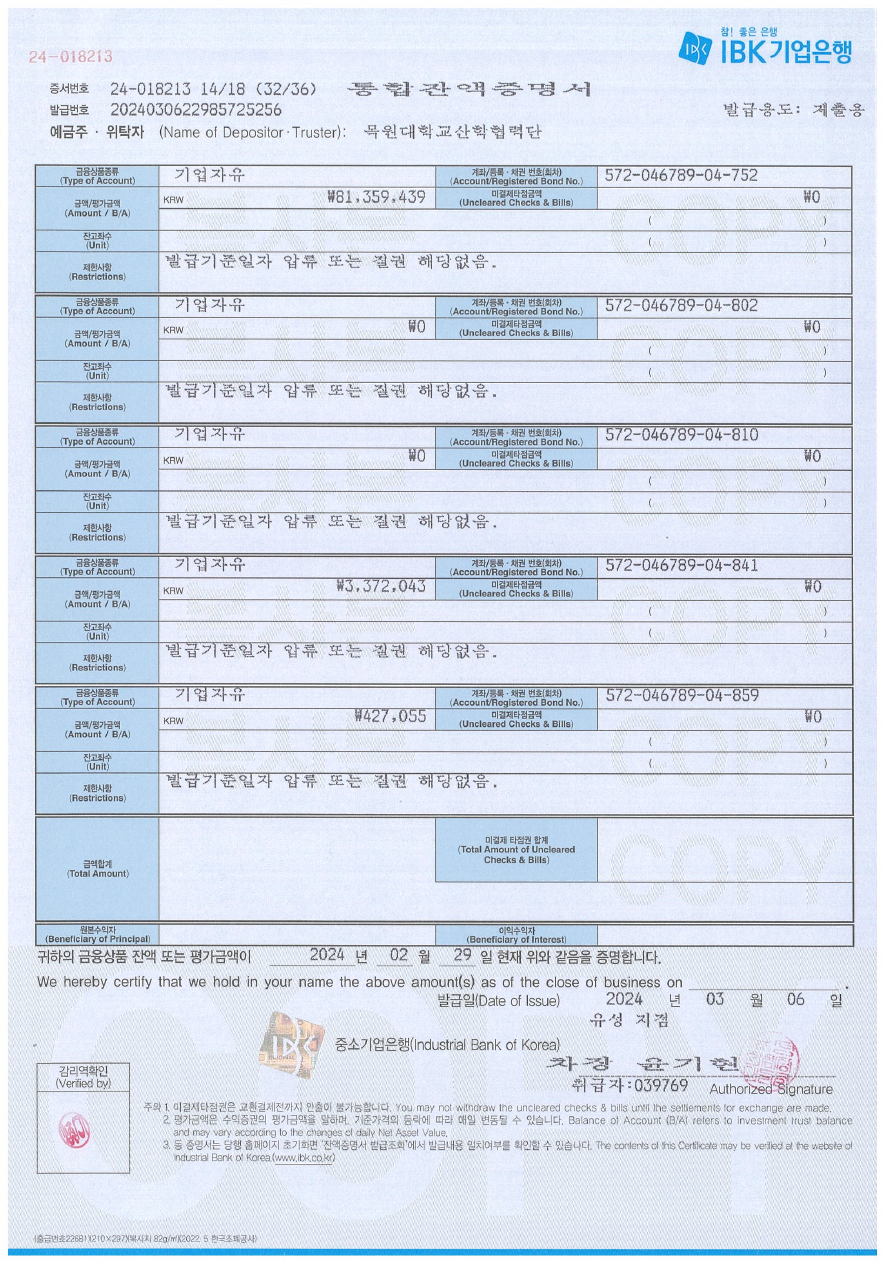 24-018213
참! 좋은 은행
IBK기업은행
증서번호 24-018213 14/18 (32/36) 통합잔액증명서
발급번호 2024030622985725256 발급용도: 제출용
예금주 · 위탁자 (Name of Depositor · Truster): 목원대학교산학협력단
금융상품종류 (Type of Account) 기업자유 계좌/등록 · 채권 번호(회차) (Account/Registered Bond No.) 572-046789-04-752
금액/평가금액 (Amount / B/A) KRW ₩81,359,439 미결제타점금액 (Uncleared Checks & Bills) ₩0
( )
잔고좌수 (Unit) ( )
제한사항 (Restrictions) 발급기준일자 압류 또는 질권 해당없음.
금융상품종류 (Type of Account) 기업자유 계좌/등록 · 채권 번호(회차) (Account/Registered Bond No.) 572-046789-04-802
금액/평가금액 (Amount / B/A) KRW ₩0 미결제타점금액 (Uncleared Checks & Bills) ₩0
( )
잔고좌수 (Unit) ( )
제한사항 (Restrictions) 발급기준일자 압류 또는 질권 해당없음.
금융상품종류 (Type of Account) 기업자유 계좌/등록 · 채권 번호(회차) (Account/Registered Bond No.) 572-046789-04-810
금액/평가금액 (Amount / B/A) KRW ₩0 미결제타점금액 (Uncleared Checks & Bills) ₩0
( )
잔고좌수 (Unit) ( )
제한사항 (Restrictions) 발급기준일자 압류 또는 질권 해당없음.
금융상품종류 (Type of Account) 기업자유 계좌/등록 · 채권 번호(회차) (Account/Registered Bond No.) 572-046789-04-841
금액/평가금액 (Amount / B/A) KRW ₩3,372,043 미결제타점금액 (Uncleared Checks & Bills) ₩0
( )
잔고좌수 (Unit) ( )
제한사항 (Restrictions) 발급기준일자 압류 또는 질권 해당없음.
금융상품종류 (Type of Account) 기업자유 계좌/등록 · 채권 번호(회차) (Account/Registered Bond No.) 572-046789-04-859
금액/평가금액 (Amount / B/A) KRW ₩427,055 미결제타점금액 (Uncleared Checks & Bills) ₩0
( )
잔고좌수 (Unit) ( )
제한사항 (Restrictions) 발급기준일자 압류 또는 질권 해당없음.
금액합계 (Total Amount) 미결제 타점권 합계 (Total Amount of Uncleared Checks & Bills)
COPY
원본수익자 (Beneficiary of Principal) 이익수익자 (Beneficiary of Interest)
귀하의 금융상품 잔액 또는 평가금액이 2024 년 02 월 29 일 현재 위와 같음을 증명합니다.
We hereby certify that we hold in your name the above amount(s) as of the close of business on .
발급일(Date of Issue) 2024 년 03 월 06 일
유성 지점
중소기업은행(Industrial Bank of Korea)
차장 윤기현
취급자:039769 Authorized Signature
감리역확인
(Verified by)
주의 1. 미결제타점권은 교환결제전까지 인출이 불가능합니다. You may not withdraw the uncleared checks & bills until the settlements for exchange are made.
2. 평가금액은 수익증권의 평가금액을 말하며, 기준가격의 등락에 따라 매일 변동될 수 있습니다. Balance of Account (B/A) refers to investment trust balance
and may vary according to the changes of daily Net Asset Value.
3. 동 증명서는 당행 홈페이지 초기화면 '잔액증명서 발급조회'에서 발급내용 일치여부를 확인할 수 있습니다. The contents of this Certificate may be verified at the website of
Industrial Bank of Korea.(www.ibk.co.kr)
(출급번호22681)(210×297)(복사지 82g/㎡)(2022. 5 한국조폐공사)